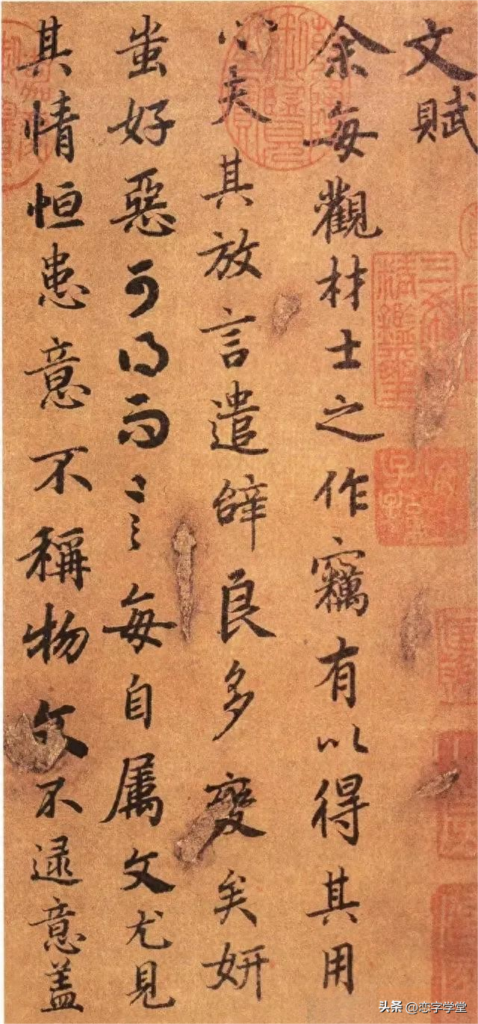 文賦
余每觀材士之作竊有以得其用
心夫其放言遣辝良多變矣妍
蚩好惡可得而言每自属文尤見
其情恒患意不稱物文不逮意盖
三希堂
精鑑璽
宜
子孫
头条 @恋字学堂